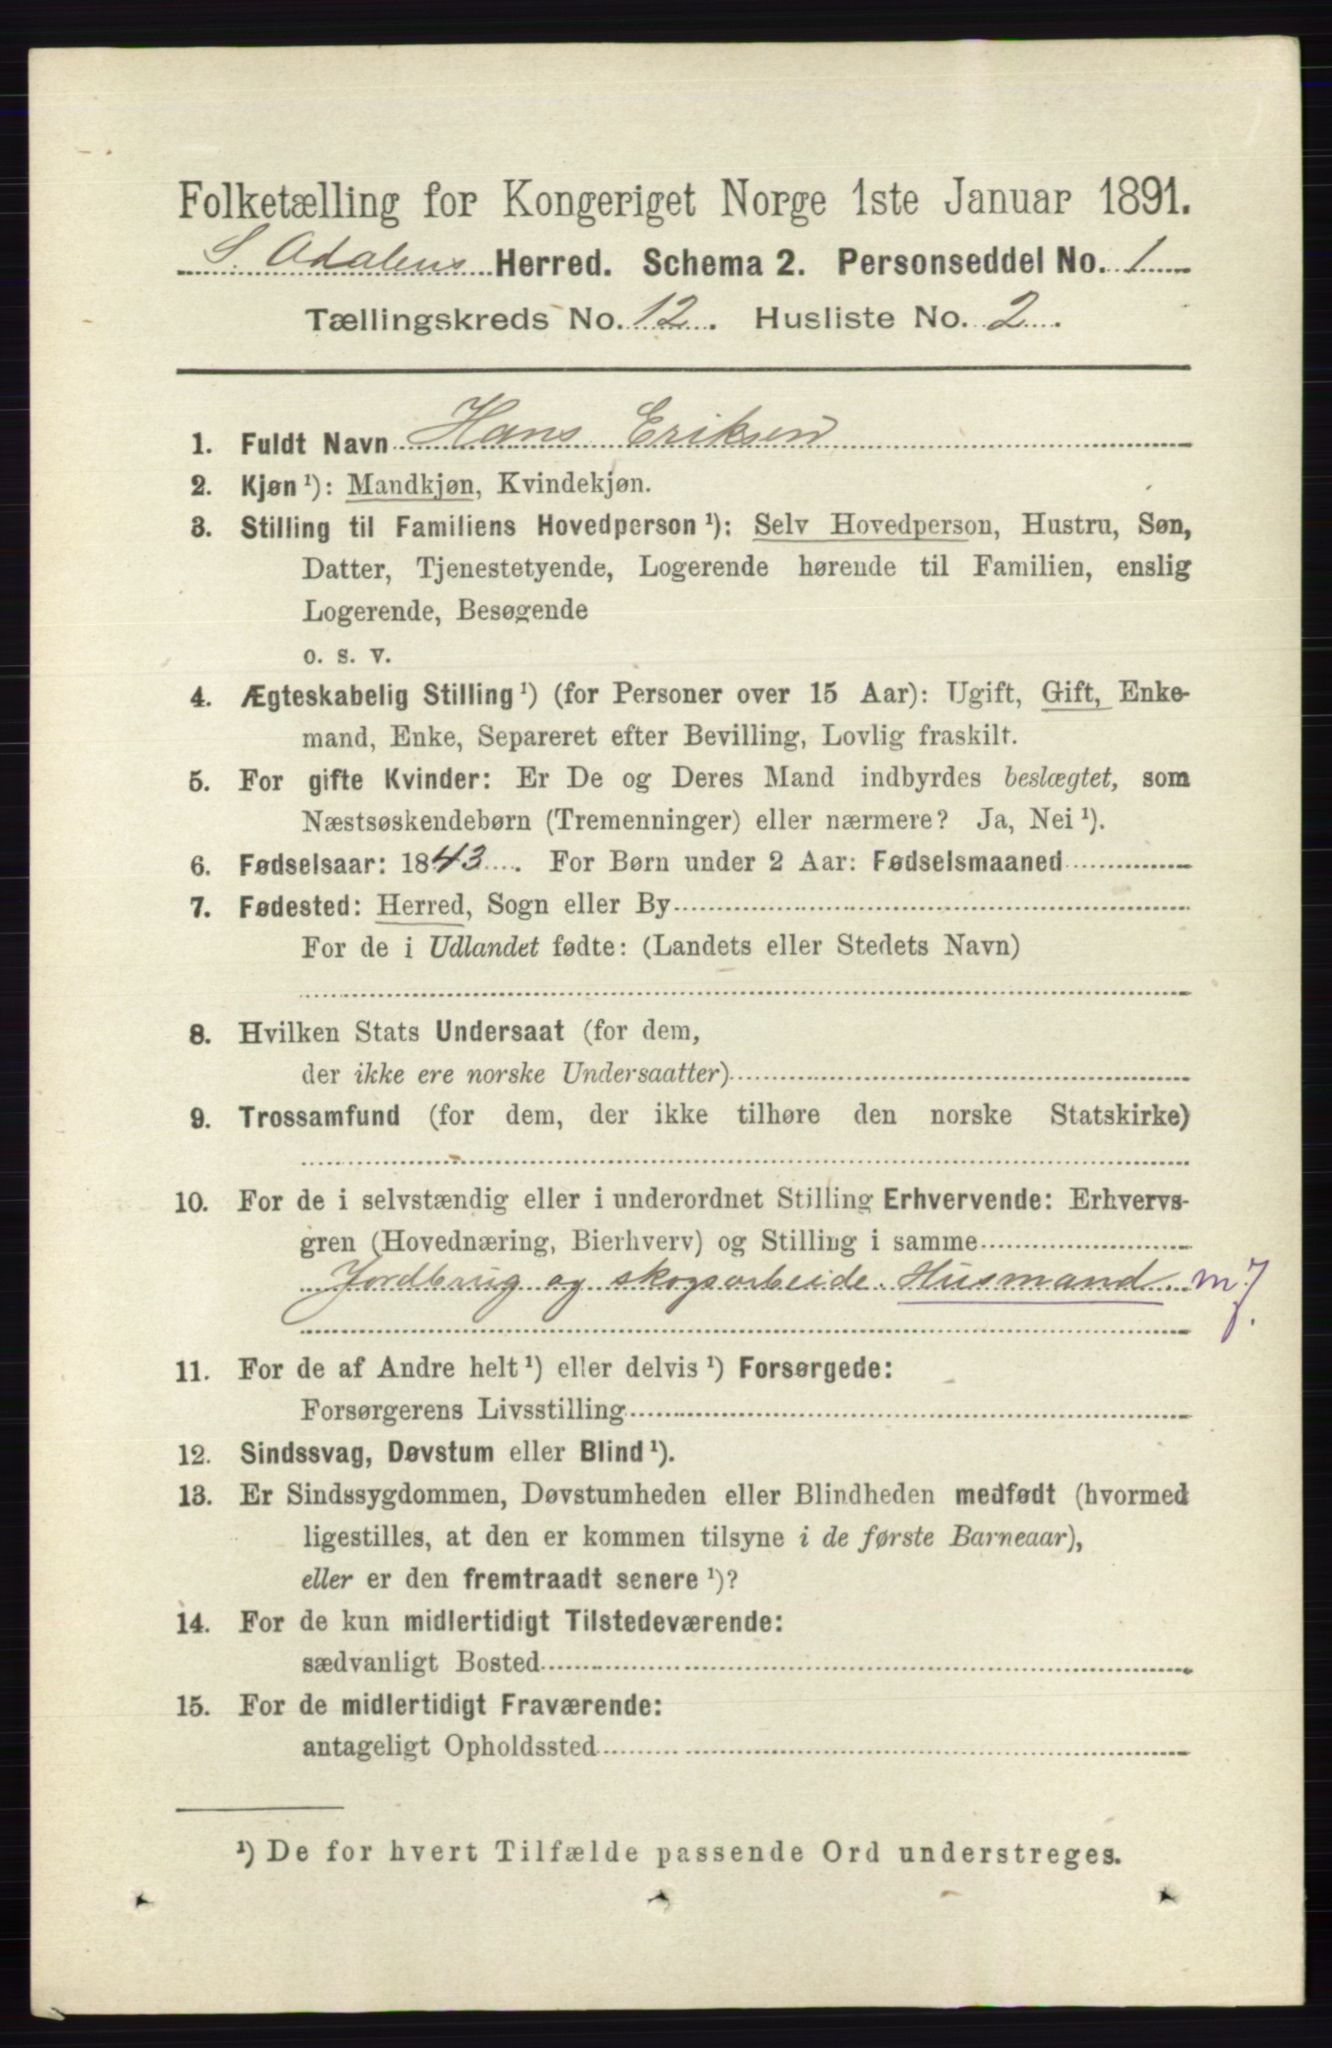 Folketælling for Kongeriget Norge 1ste Januar 1891.
S. Adalens Herred. Schema 2. Personseddel No. 1
Tællingskreds No. 12. Husliste No. 2.
1. Fuldt Navn Hans Eriksen
2. Kjøn¹): Mandkjøn, Kvindekjøn.
3. Stilling til Familiens Hovedperson¹): Selv Hovedperson, Hustru, Søn,
Datter, Tjenestetyende, Logerende hørende til Familien, enslig
Logerende, Besøgende
o. s. v.
4. Ægteskabelig Stilling¹) (for Personer over 15 Aar): Ugift, Gift, Enke-
mand, Enke, Separeret efter Bevilling, Lovlig fraskilt.
5. For gifte Kvinder: Er De og Deres Mand indbyrdes beslægtet, som
Næstsøskendebørn (Tremenninger) eller nærmere? Ja, Nei¹).
6. Fødselsaar: 1843. For Børn under 2 Aar: Fødselsmaaned
7. Fødested: Herred, Sogn eller By
For de i Udlandet fødte: (Landets eller Stedets Navn)
8. Hvilken Stats Undersaat (for dem,
der ikke ere norske Undersaatter)
9. Trossamfund (for dem, der ikke tilhøre den norske Statskirke)
10. For de i selvstændig eller i underordnet Stilling Erhvervende: Erhvervs-
gren (Hovednæring, Bierhverv) og Stilling i samme
Jordbrug og skogsarbeide. Husmand m j.
11. For de af Andre helt¹) eller delvis¹) Forsørgede:
Forsørgerens Livsstilling
12. Sindssvag, Døvstum eller Blind¹).
13. Er Sindssygdommen, Døvstumheden eller Blindheden medfødt (hvormed
ligestilles, at den er kommen tilsyne i de første Barneaar),
eller er den fremtraadt senere¹)?
14. For de kun midlertidigt Tilstedeværende:
sædvanligt Bosted
15. For de midlertidigt Fraværende:
antageligt Opholdssted
¹) De for hvert Tilfælde passende Ord understreges.